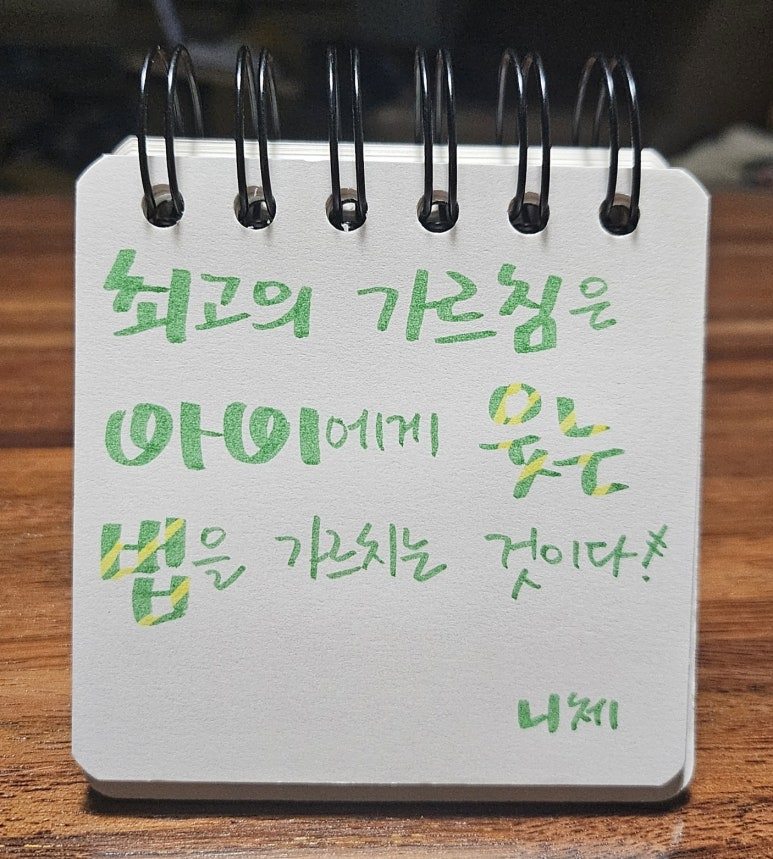 최고의 가르침은
아이에게 웃는
법을 가르치는 것이다!
니체